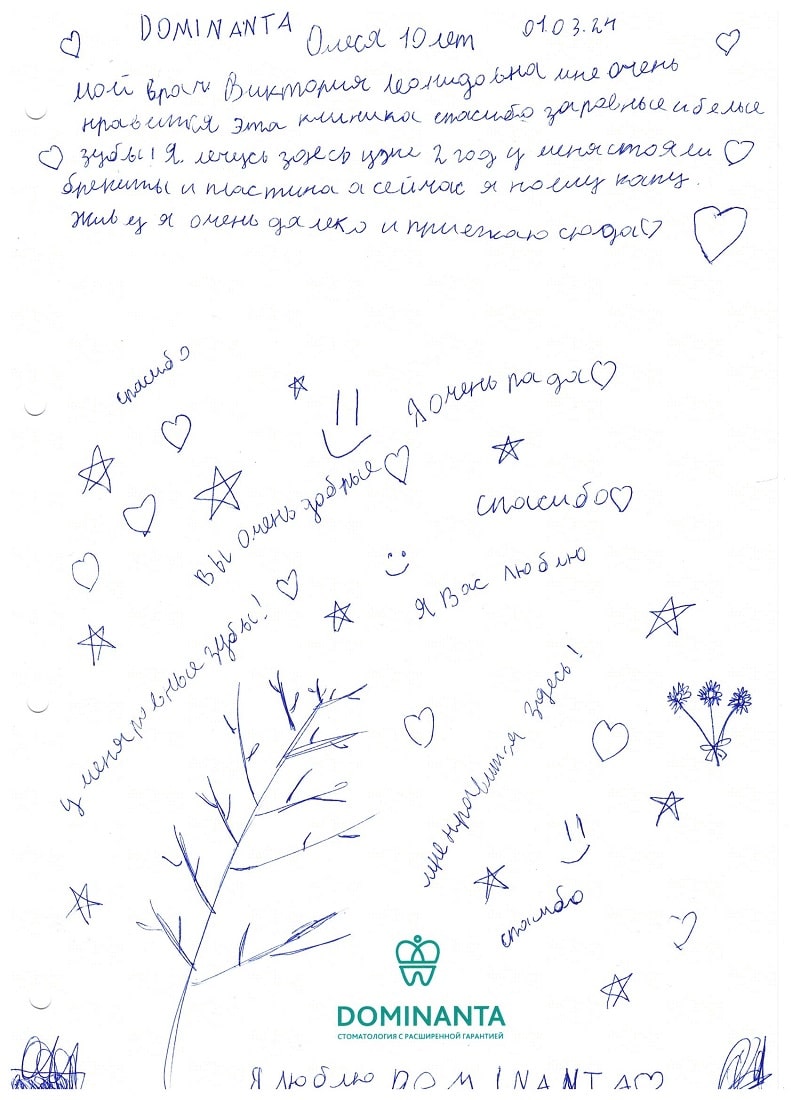 DOMINANTA Олеся 10 лет 01.03.24
Мой врач Виктория Леонидовна мне очень
нравится эта клиника спасибо заравные и белые
зубы! Я лечусь здесь уже 2 год у меня стояли
брекиты и пластина а сейчас я ношу капу.
Живу я очень далеко и приезжаю сюда
спасибо
Я очень рада
Вы очень добрые
спасибо
Я Вас люблю
у меня ровные зубы!
мне нравится здесь!
спасибо
DOMINANTA
СТОМАТОЛОГИЯ С РАСШИРЕННОЙ ГАРАНТИЕЙ
Я люблю DOMINANTA